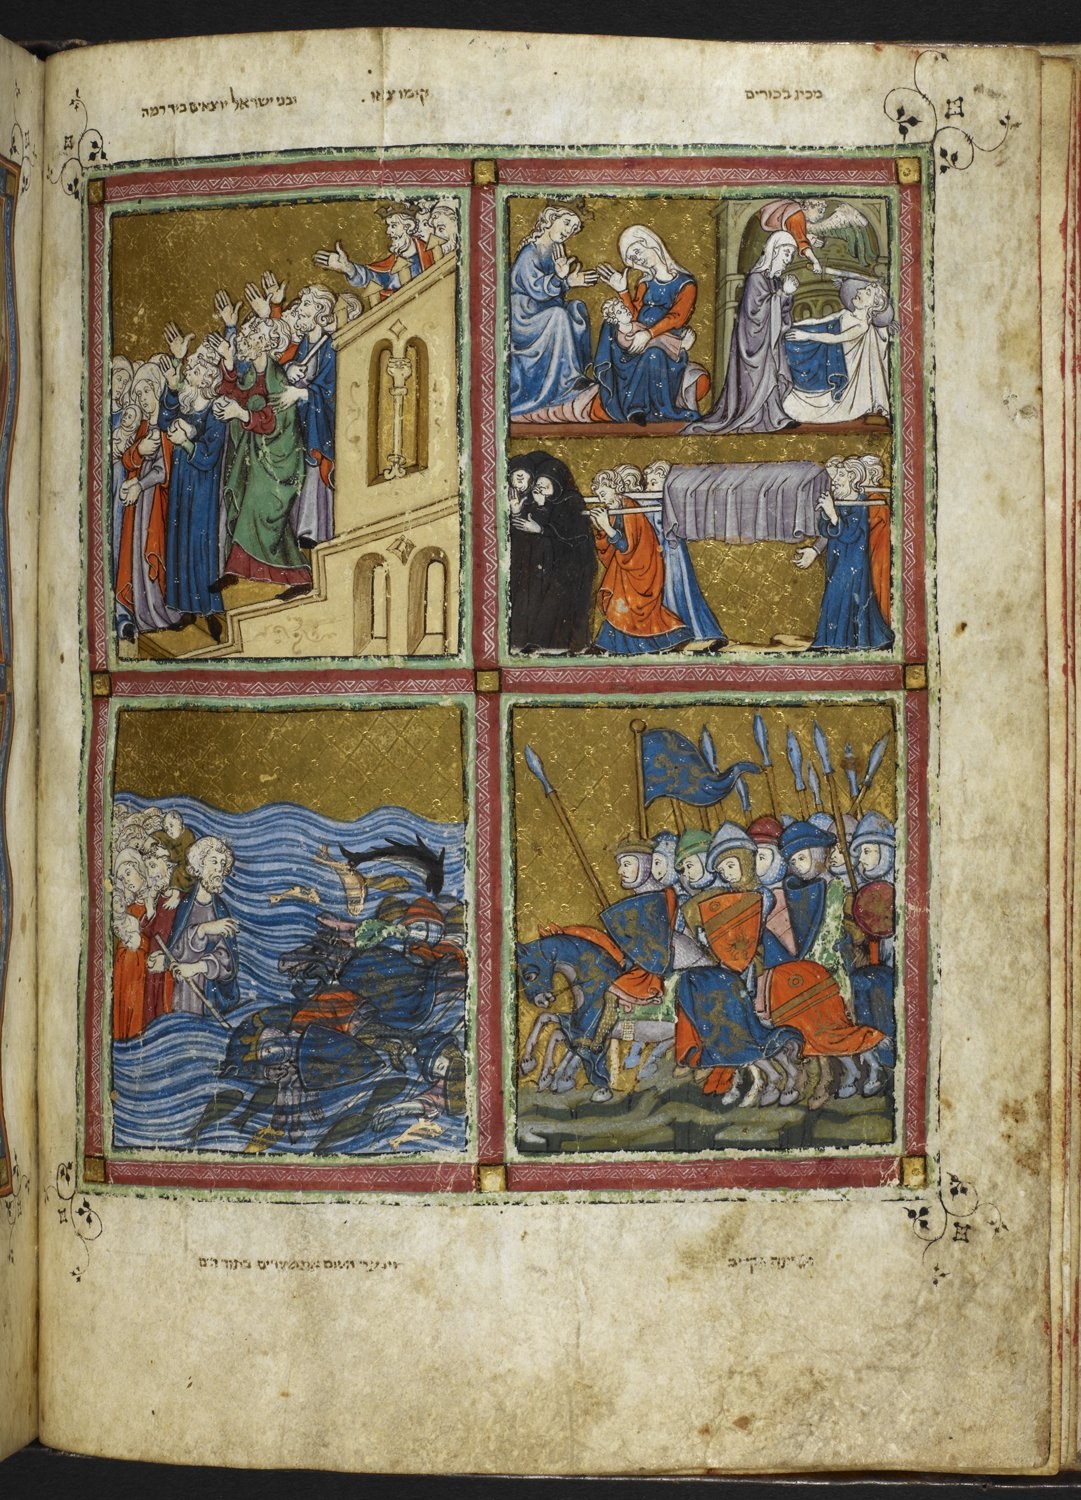 מכין בכורים
קומו צאו . ובני ישראל יוצאים ביד רמה
וינער השם את מצרים בתוך הים